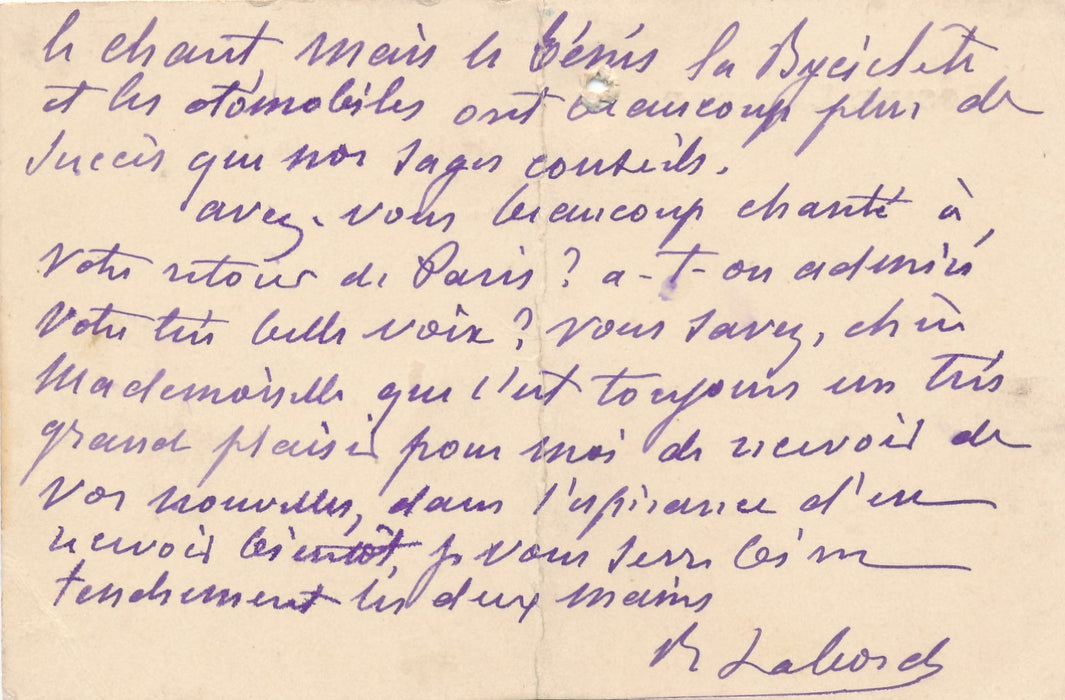 le chant, mais le ténis la Byciclete
et les otomobiles ont beaucoup plus de
succès que nos sages conseils.
avez-vous beaucoup chanté à
votre retour de Paris? a-t-on admiré
votre très belle voix? vous savez, chère
Mademoiselle que c'est toujours un très
grand plaisir pour moi de recevoir de
vos nouvelles, dans l'espérance d'en
recevoir bientôt, je vous serre bien
tendrement les deux mains
Laborde